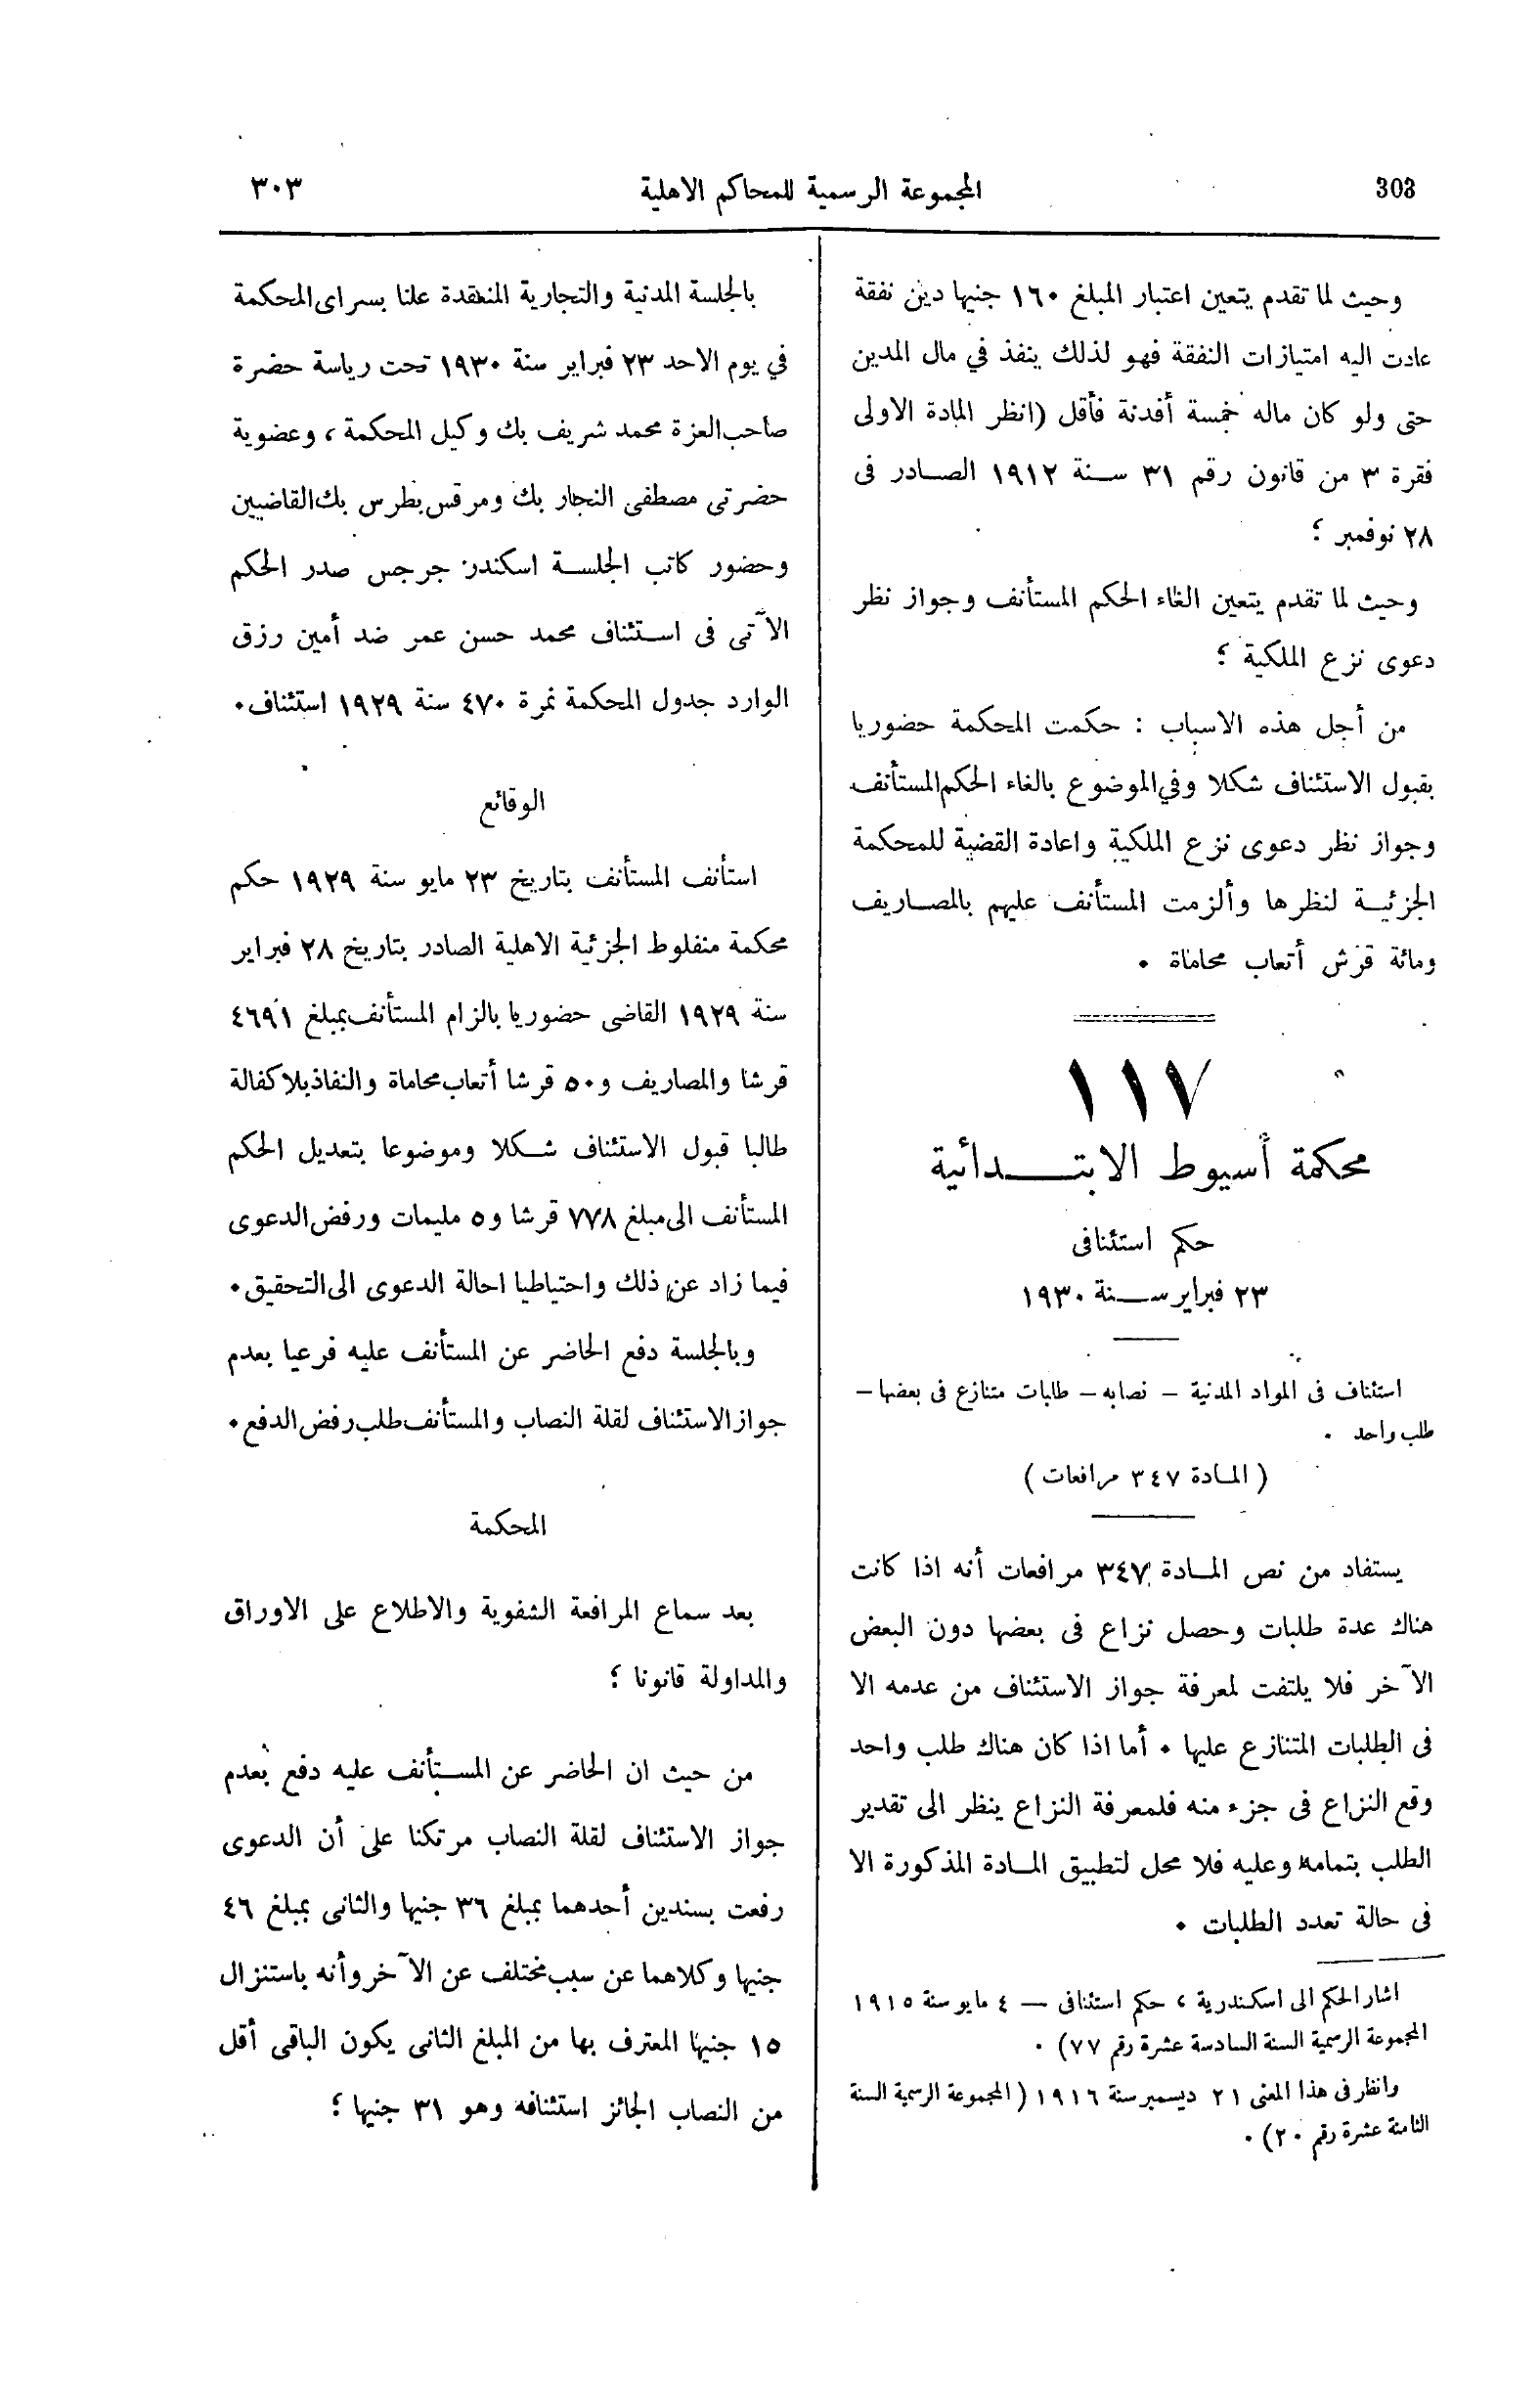 303
المجموعة الرسمية للمحاكم الاهلية
٣٠٣
وحيث لما تقدم يتعين اعتبار المبلغ ١٦٠ جنيها دين نفقة
عادت اليه امتيازات النفقة فهو لذلك ينفذ في مال المدين
حتى ولو كان ماله خمسة أفدنة فأقل (انظر المادة الاولى
فقرة ٣ من قانون رقم ٣١ سنة ١٩١٢ الصادر فى
٢٨ نوفمبر ؛
وحيث لما تقدم يتعين الغاء الحكم المستأنف وجواز نظر
دعوى نزع الملكية ؛
من أجل هذه الاسباب : حكمت المحكمة حضوريا
بقبول الاستئناف شكلا وفي الموضوع بالغاء الحكم المستأنف
وجواز نظر دعوى نزع الملكية واعادة القضية للمحكمة
الجزئية لنظرها وألزمت المستأنف عليهم بالمصاريف
ومائة قرش أتعاب محاماة ٠
١١٧
محكمة أسيوط الابتدائية
حكم استئنافى
٢٣ فبراير سنة ١٩٣٠
استئناف فى المواد المدنية – نصابه – طلبات متنازع فى بعضها –
طلب واحد ٠
( المادة ٣٤٧ مرافعات )
يستفاد من نص المادة ٣٤٧ مرافعات أنه اذا كانت
هناك عدة طلبات وحصل نزاع فى بعضها دون البعض
الآخر فلا يلتفت لمعرفة جواز الاستئناف من عدمه الا
فى الطلبات المتنازع عليها ٠ أما اذا كان هناك طلب واحد
وقع النزاع فى جزء منه فلمعرفة النزاع ينظر الى تقدير
الطلب بتمامه وعليه فلا محل لتطبيق المادة المذكورة الا
فى حالة تعدد الطلبات ٠
اشار الحكم الى اسكندرية ، حكم استئنافى — ٤ مايو سنة ١٩١٥
المجموعة الرسمية السنة السادسة عشرة رقم ٧٧) ٠
وانظر فى هذا المعنى ٢١ ديسمبر سنة ١٩١٦ ( المجموعة الرسمية السنة
الثامنة عشرة رقم ٢٠) ٠
بالجلسة المدنية والتجارية المنعقدة علنا بسراى المحكمة
في يوم الاحد ٢٣ فبراير سنة ١٩٣٠ تحت رياسة حضرة
صاحب العزة محمد شريف بك وكيل المحكمة ، وعضوية
حضرتى مصطفى النجار بك ومرقس بطرس بك القاضيين
وحضور كاتب الجلسة اسكندر جرجس صدر الحكم
الآتى فى استئناف محمد حسن عمر ضد أمين رزق
الوارد جدول المحكمة نمرة ٤٧٠ سنة ١٩٢٩ استئناف ٠
الوقائع
استأنف المستأنف بتاريخ ٢٣ مايو سنة ١٩٢٩ حكم
محكمة منفلوط الجزئية الاهلية الصادر بتاريخ ٢٨ فبراير
سنة ١٩٢٩ القاضى حضوريا بالزام المستأنف بمبلغ ٤٦٩١
قرشا والمصاريف و٥٠ قرشا أتعاب محاماة والنفاذ بلا كفالة
طالبا قبول الاستئناف شكلا وموضوعا بتعديل الحكم
المستأنف الى مبلغ ٧٧٨ قرشا و٥ مليمات ورفض الدعوى
فيما زاد عن ذلك واحتياطيا احالة الدعوى الى التحقيق ٠
وبالجلسة دفع الحاضر عن المستأنف عليه فرعيا بعدم
جواز الاستئناف لقلة النصاب والمستأنف طلب رفض الدفع ٠
المحكمة
بعد سماع المرافعة الشفوية والاطلاع على الاوراق
والمداولة قانونا ؛
من حيث ان الحاضر عن المستأنف عليه دفع بعدم
جواز الاستئناف لقلة النصاب مرتكنا على أن الدعوى
رفعت بسندين أحدهما بمبلغ ٣٦ جنيها والثانى بمبلغ ٤٦
جنيها وكلاهما عن سبب مختلف عن الآخر وأنه باستنزال
١٥ جنيها المعترف بها من المبلغ الثانى يكون الباقى أقل
من النصاب الجائز استئنافه وهو ٣١ جنيها ؛